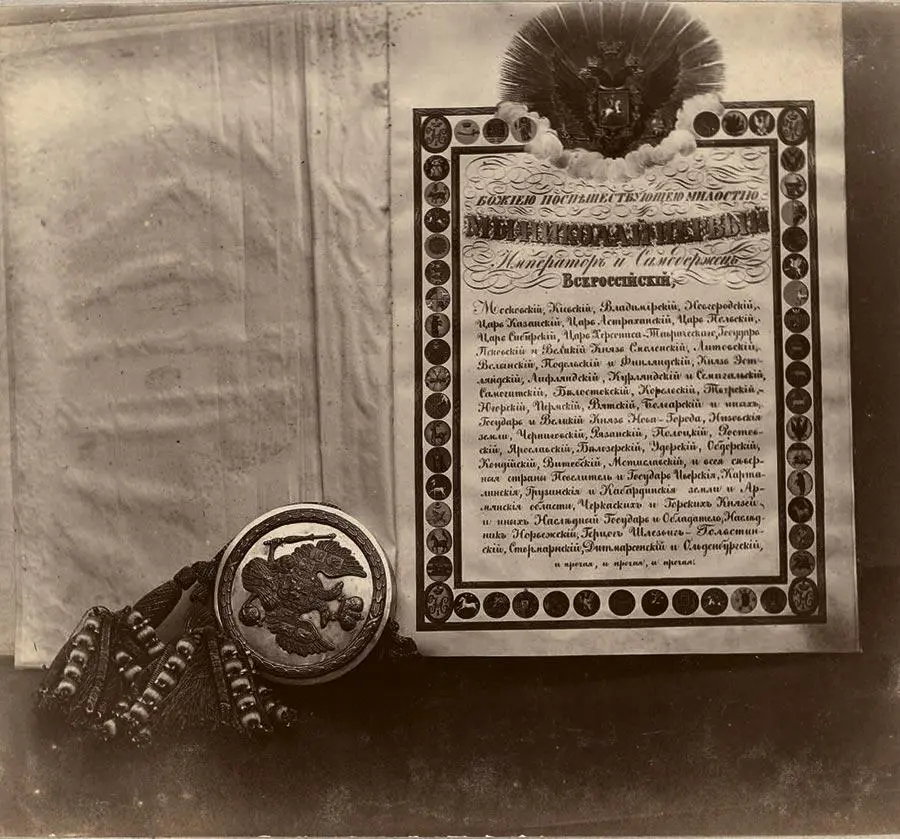 БОЖІЕЮ ПОСПѢШЕСТВУЮЩЕЮ МИЛОСТІЮ
МЫ НИКОЛАЙ ПЕРВЫЙ
Императоръ и Самодержецъ
ВСЕРОССІЙСКІЙ,
Московскій, Кіевскій, Владимірскій, Новгородскій,
Царь Казанскій, Царь Астраханскій, Царь Польскій,
Царь Сибирскій, Царь Херсониса-Таврическаго, Государь
Псковскій и Великій Князь Смоленскій, Литовскій,
Волынскій, Подольскій и Финляндскій, Князь Эст-
ляндскій, Лифляндскій, Курляндскій и Семигальскій,
Самогитскій, Бѣлостокскій, Корельскій, Тверскій,
Югорскій, Пермскій, Вятскій, Болгарскій и иныхъ,
Государь и Великій Князь Нова-Города, Низовскія
земли, Черниговскій, Рязанскій, Полоцкій, Ростов-
скій, Ярославскій, Бѣлозерскій, Удорскій, Обдорскій,
Кондійскій, Витебскій, Мстиславскій, и всея сѣвер-
ныя страны Повелитель и Государь Иверскія, Карта-
линскія, Грузинскія и Кабардинскія земли и Ар-
мянскія области, Черкаскихъ и Горскихъ Князей,
и иныхъ Наслѣдный Государь и Обладатель, Наслѣд-
никъ Норвежскій, Герцогъ Шлезвигъ-Голстин-
скій, Стормарнскій, Дитмарсенскій и Ольденбургскій,
и прочая, и прочая, и прочая.